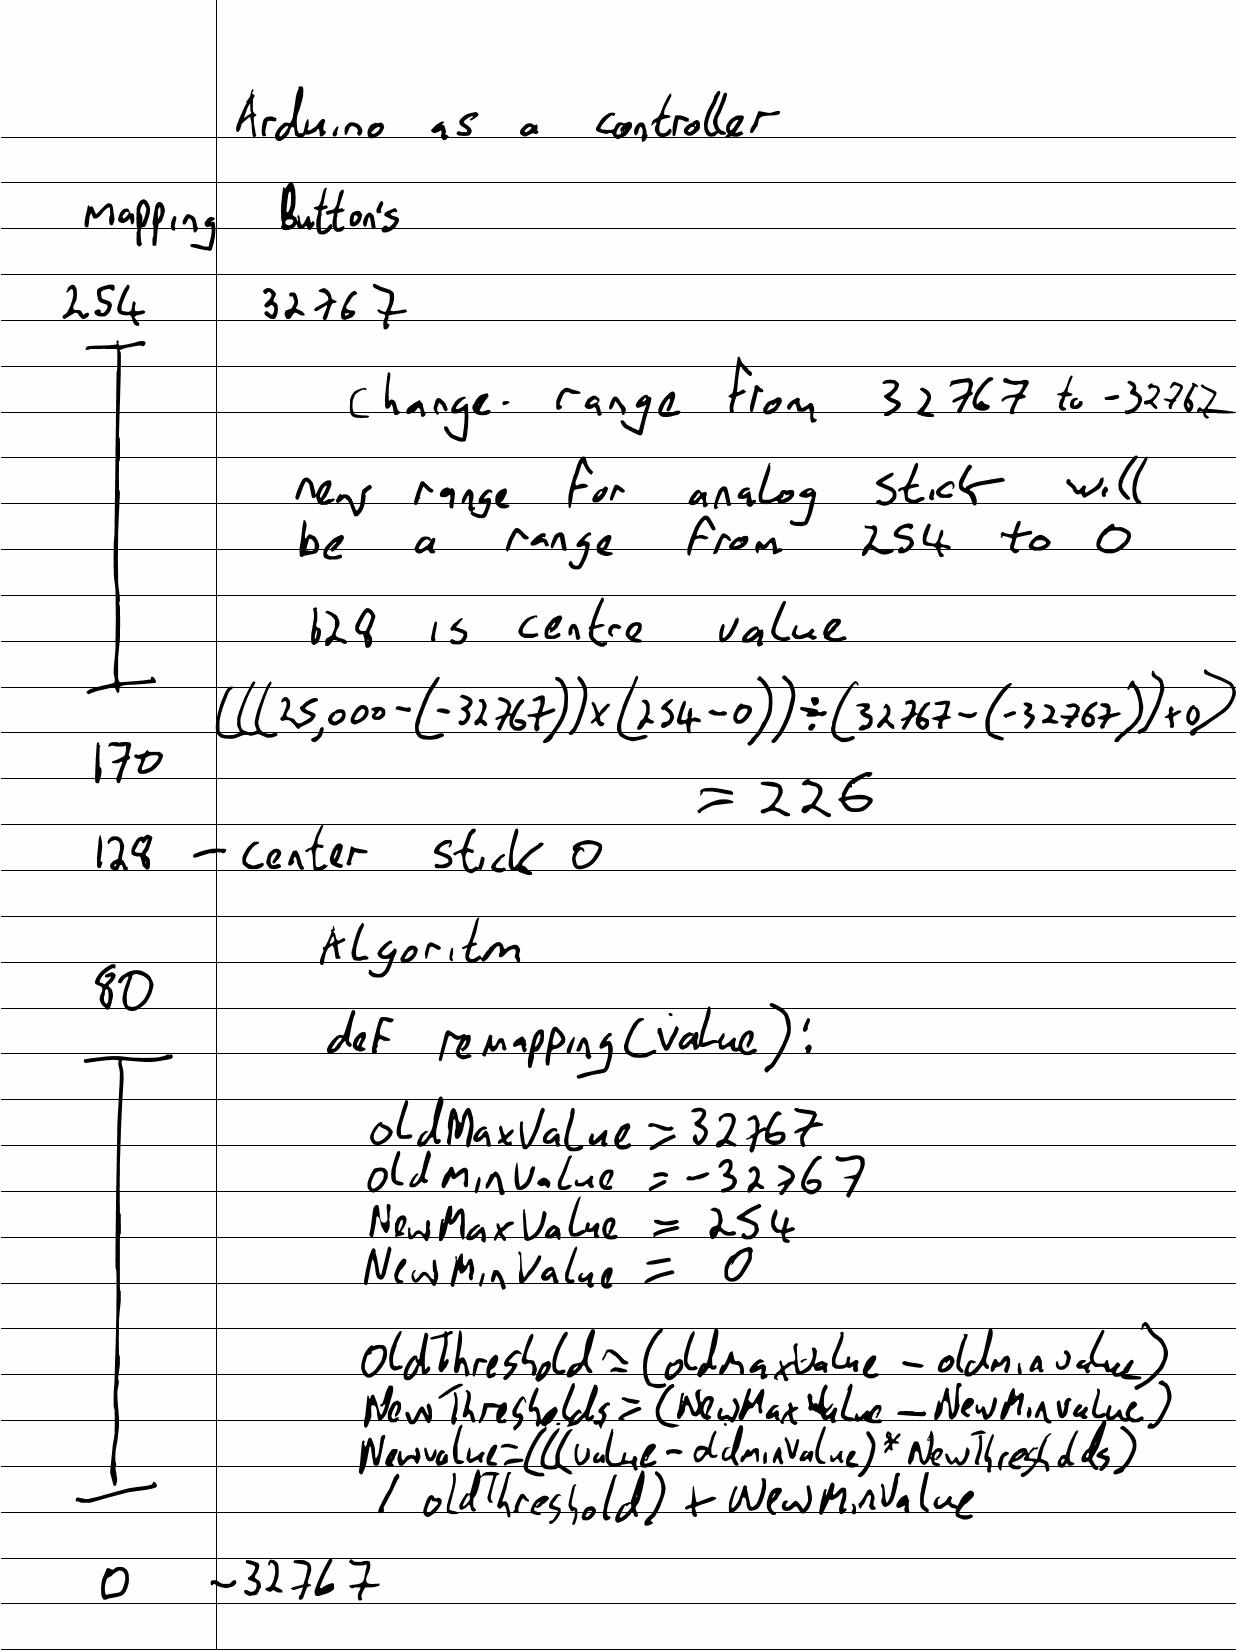 Arduino as a controller
Mapping Button's
254 32767
Change. range from 32767 to -32767
new range for analog stick will
be a range from 254 to 0
128 is centre value
(((25,000-(-32767))×(254-0))÷(32767-(-32767))+0)
170
= 226
128 - center stick 0
ALgoritm
80
def remapping(value):
oldMaxValue = 32767
oldminValue = -32767
NewMaxValue = 254
NewMinValue = 0
OldThreshold = (oldmaxValue - oldminvalue)
NewThresholds = (NewMaxValue - NewMinvalue)
Newvalue=(((value - oldminvalue) * NewThresholds)
/ oldThreshold) + NewMinValue
0 -32767